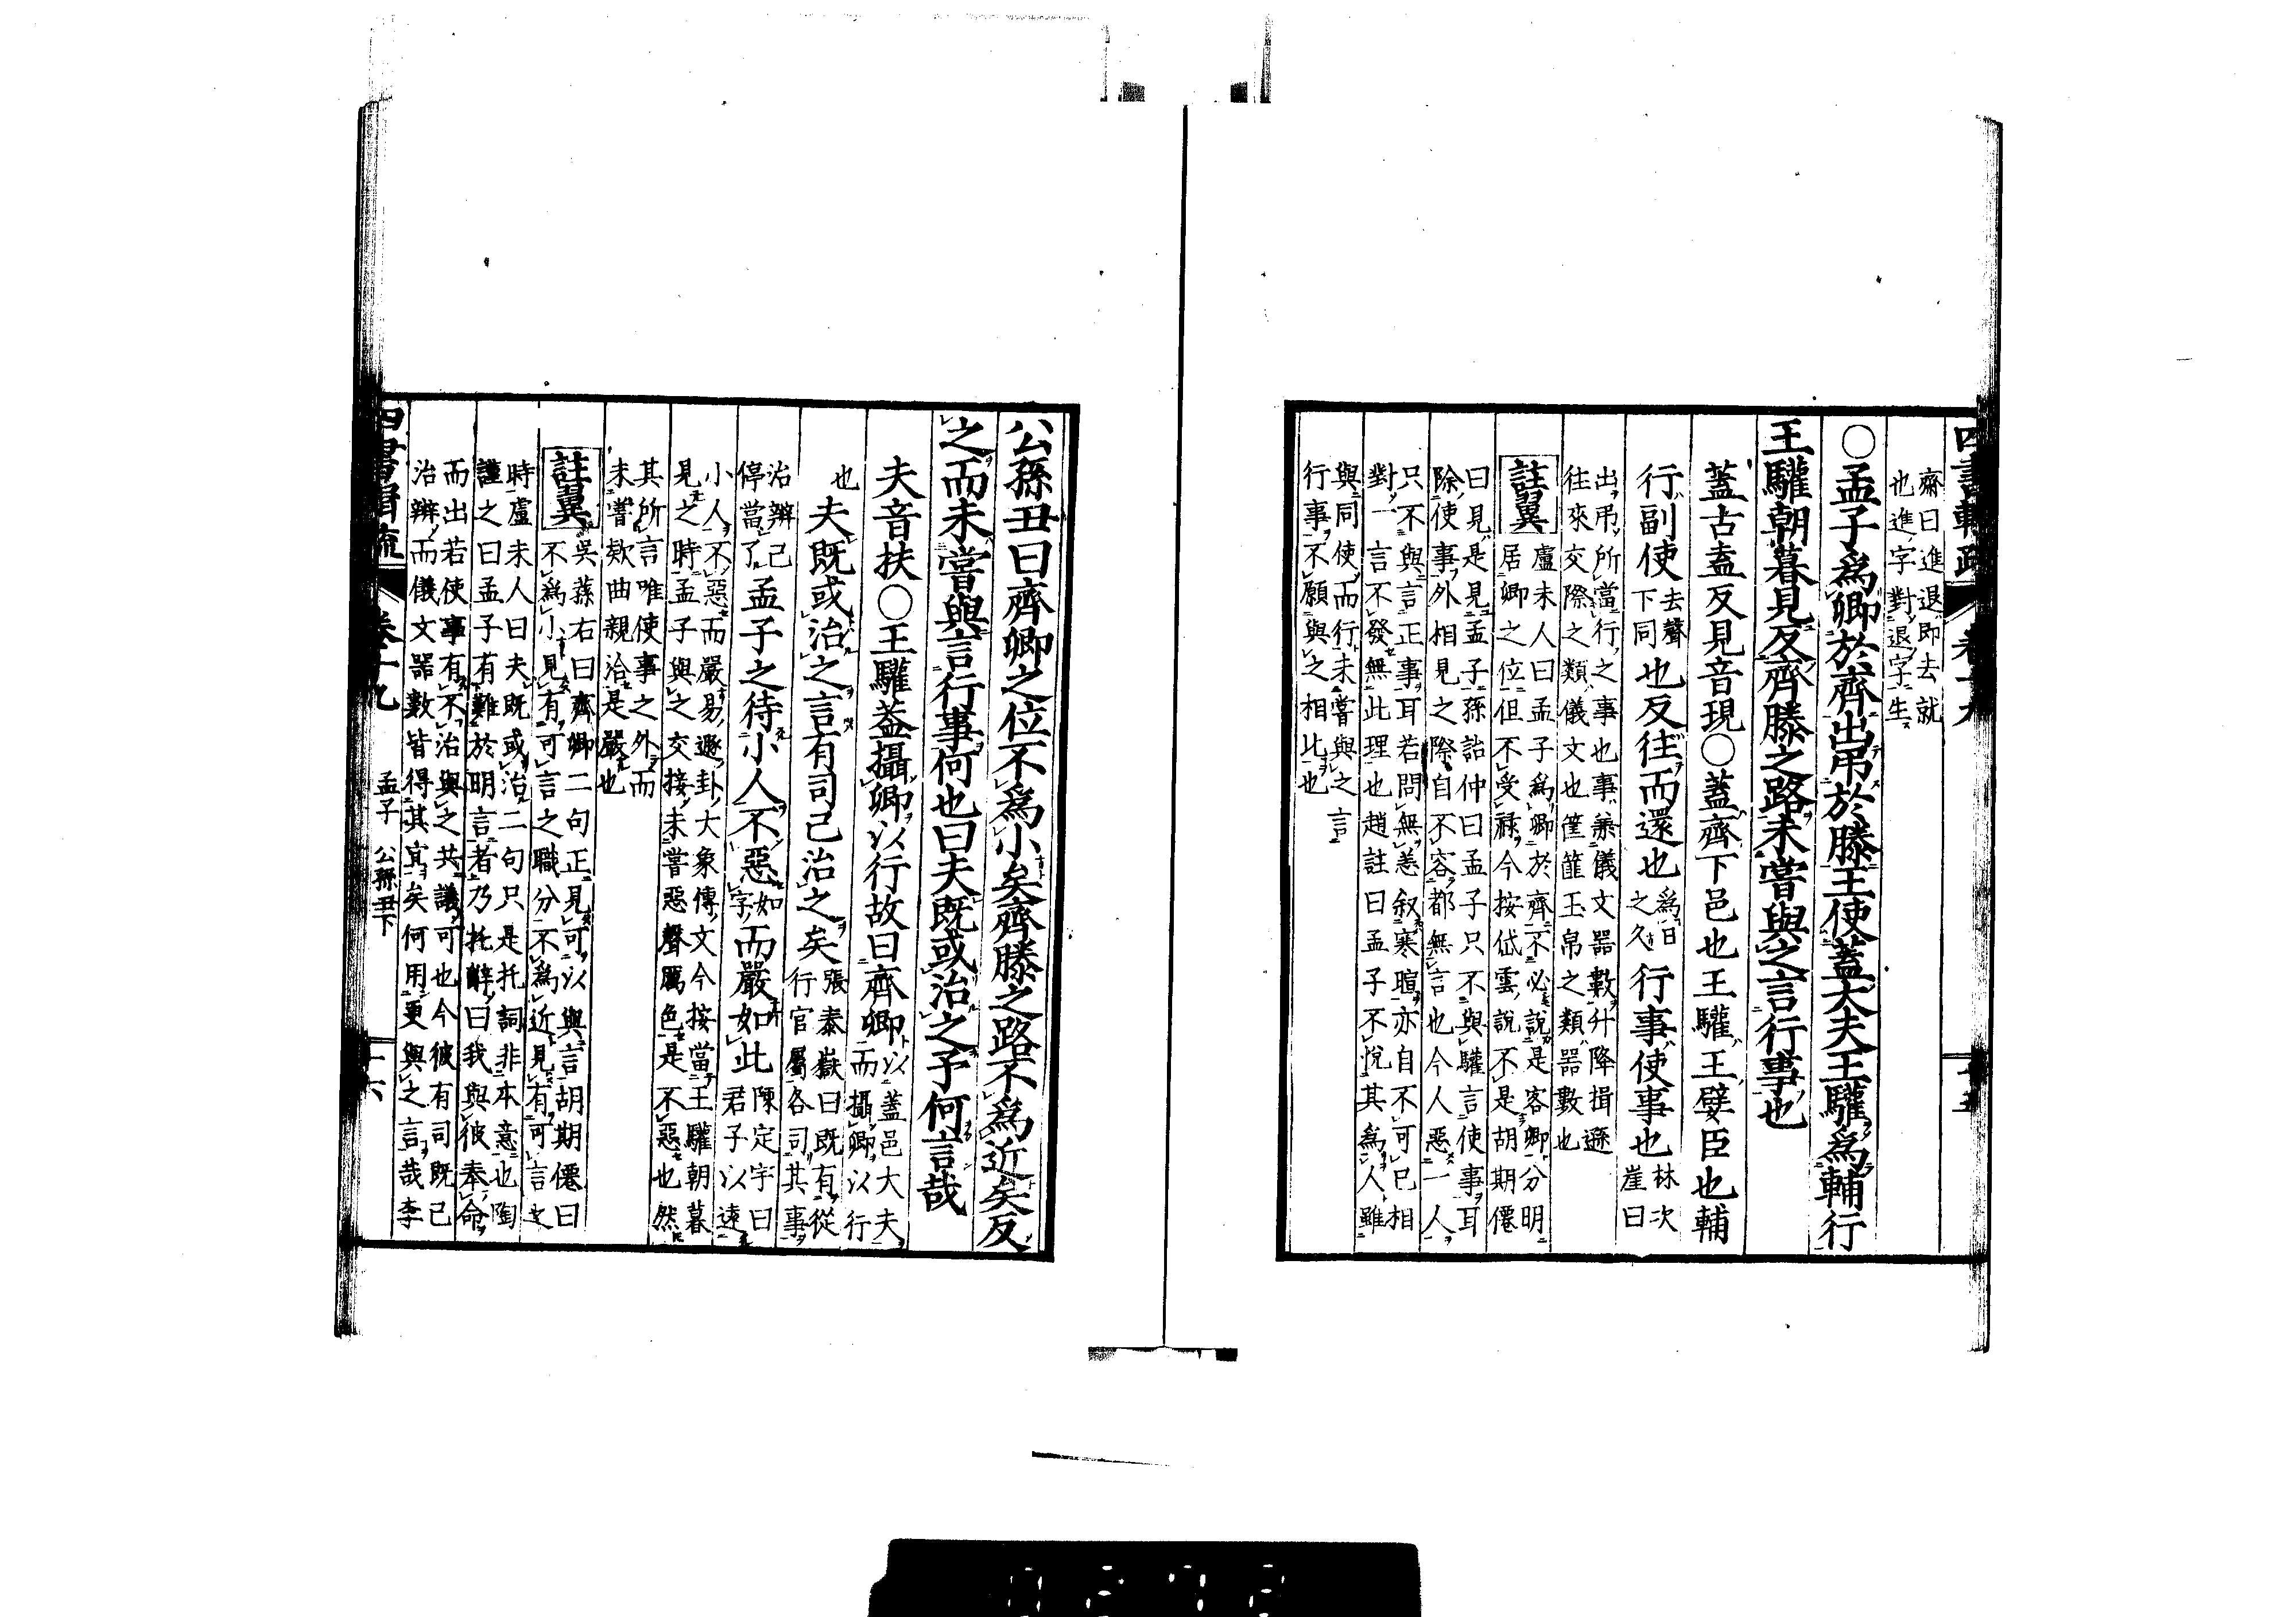 四書輯疏 卷十九 十五
齋曰進退即去就
也進字對退字生
○孟子爲卿於齊出弔於滕王使蓋大夫王驩爲輔行
王驩朝暮見反齊滕之路未嘗與之言行事也
蓋古盍反見音現○蓋齊下邑也王驩王嬖臣也輔
行副使去聲下同也反往而還也爲日之久行事使事也林次崖曰
出弔所當行之事也事兼儀文器數升降揖遜
往來交際之類儀文也筐篚玉帛之類器數也
註翼
盧未人曰孟子爲卿於齊不必說是客卿分明
居卿之位但不受祿今按岱雲說不是胡期僊
曰見是見孟子孫詒仲曰孟子只不與驩言使事耳
除使事外相見之際自不容都無言也今人惡一人
只不與言正事耳若問無恙叙寒暄亦自不可已相
對一言不發無此理也趙註曰孟子不悅其爲人雖
與同使而行未嘗與之言
行事不願與之相比也
公孫丑曰齊卿之位不爲小矣齊滕之路不爲近矣反
之而未嘗與言行事何也曰夫既或治之予何言哉
夫音扶○王驩葢攝卿以行故曰齊卿以蓋邑大夫而攝卿以行
也夫既或治之言有司已治之矣張泰嶽曰既有從行官屬各司其事
治辦已停當了孟子之待小人不惡如字而嚴如此陳定宇曰君子以遠
小人不惡而嚴易遯卦大象傳文今按當王驩朝暮
見之時孟子與之交接未嘗惡聲厲色是不惡也然
其所言唯使事之外而
未嘗欵曲親洽是嚴也
註翼
吳蓀右曰齊卿二句正見可以與言胡期僊曰
不爲小見有可言之職分不爲近見有可言之
時盧未人曰夫既或治二句只是托詞非本意也陶
謹之曰孟子有難於明言者乃托辭曰我與彼奉命
而出若使事有不治與之共議可也今彼有司既已
治辦而儀文器數皆得其宜矣何用更與之言哉李
四書輯疏 卷十九 孟子 公孫丑下 十六